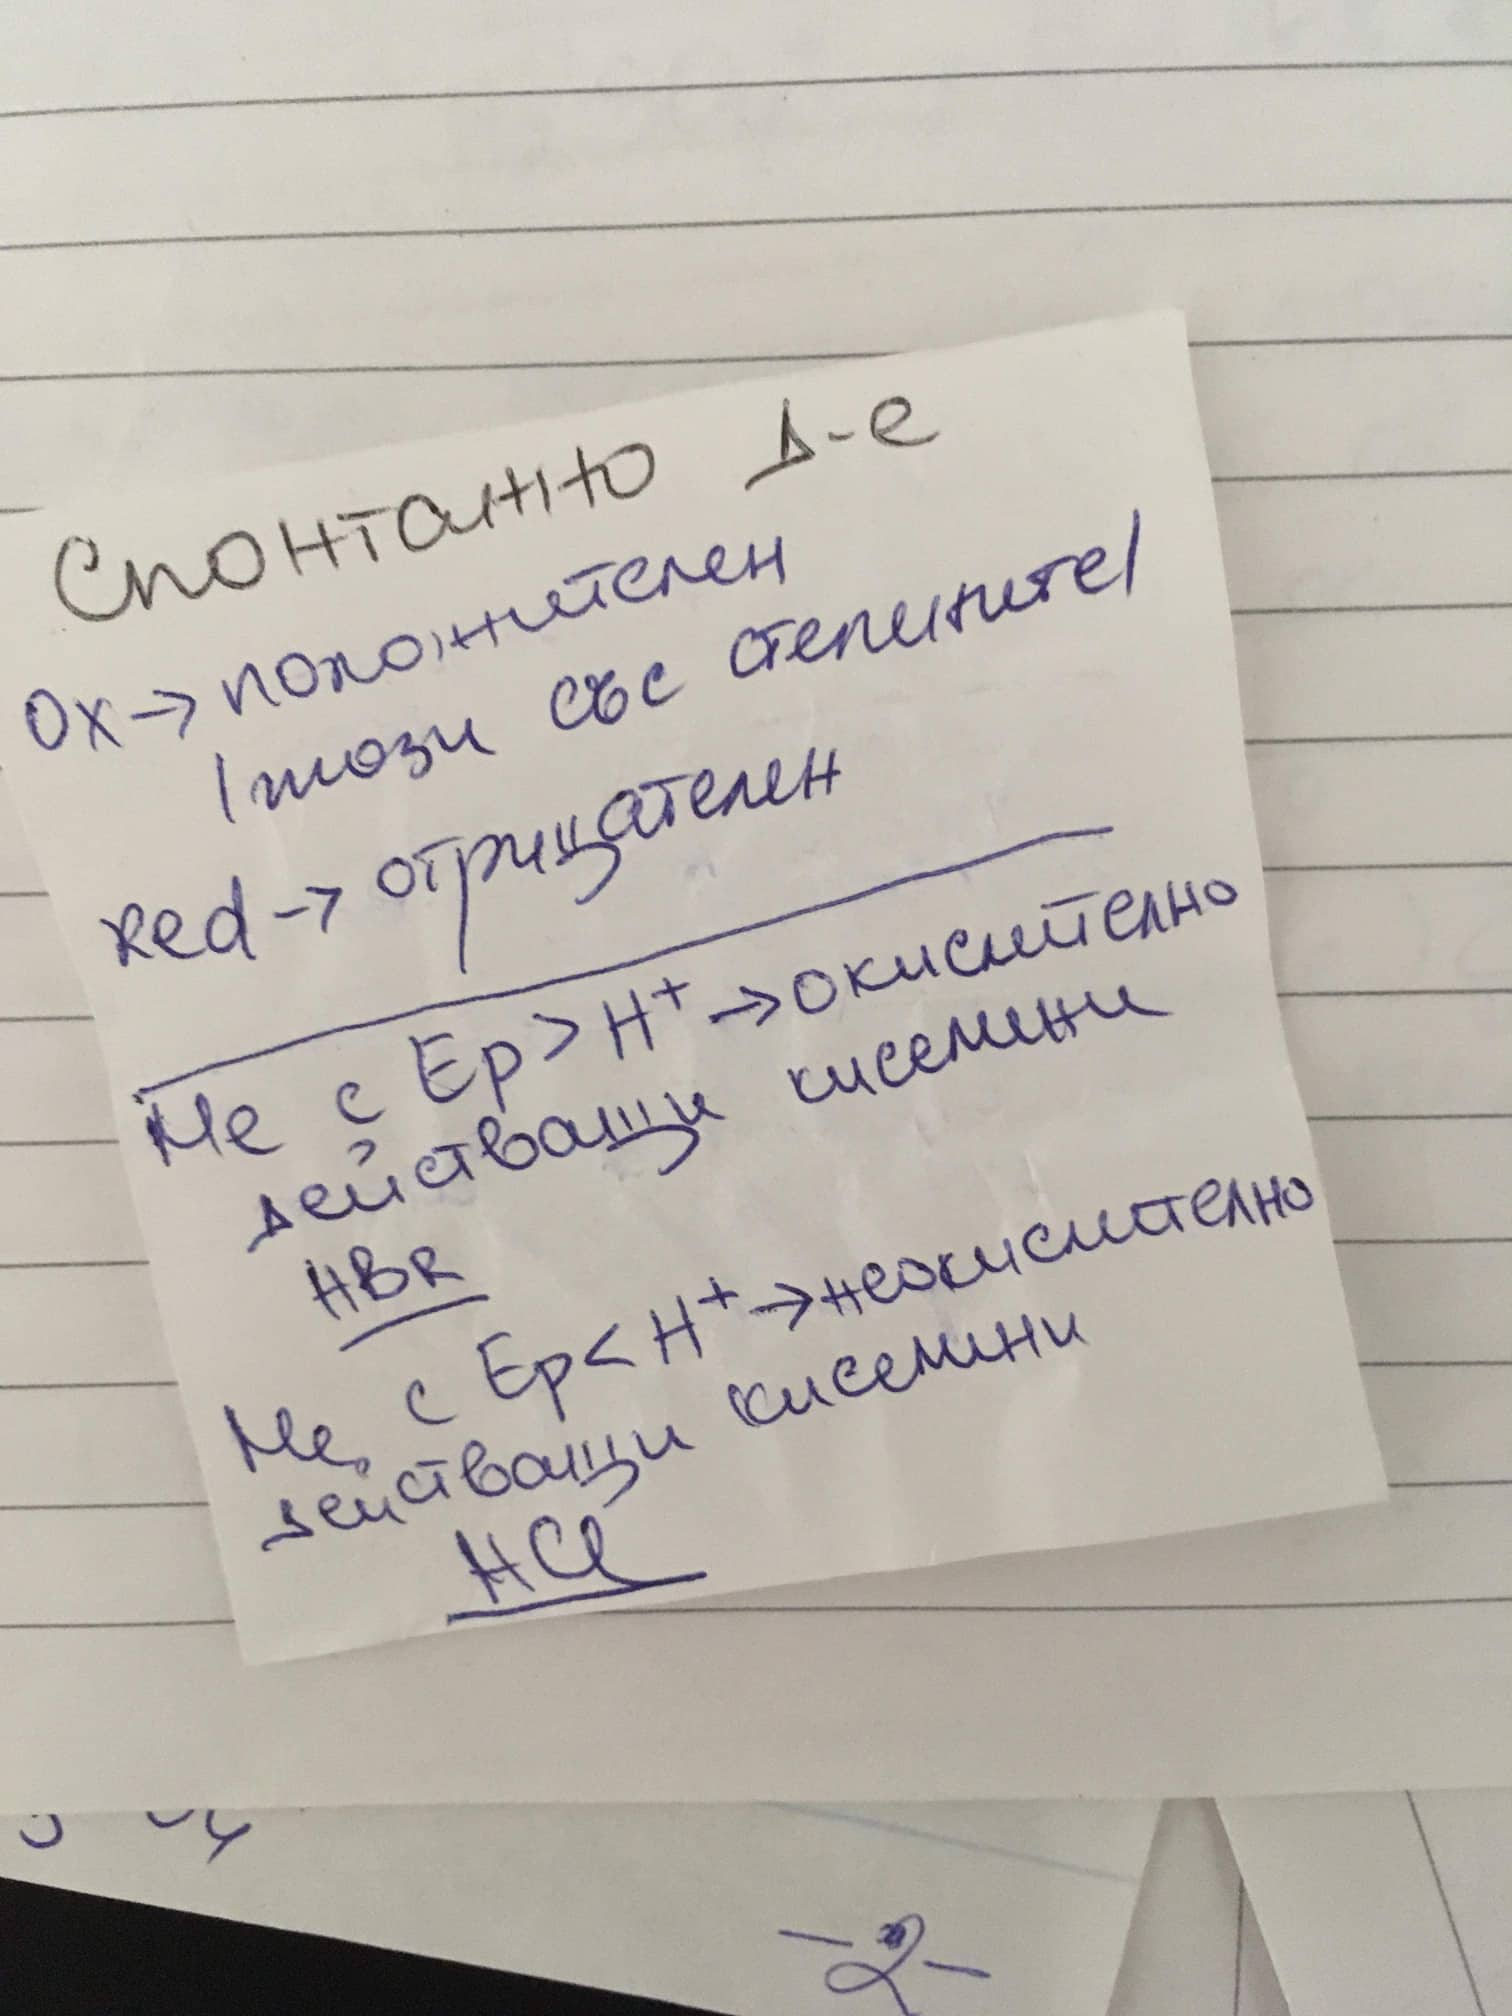 Спонтанно д-е
Ox → положителен
/този със степените/
Red → отрицателен
Me с Ep > H⁺ → окислително
действащи киселини
HBR
Me с Ep < H⁺ → неокислително
действащи киселини
HCl
-2-